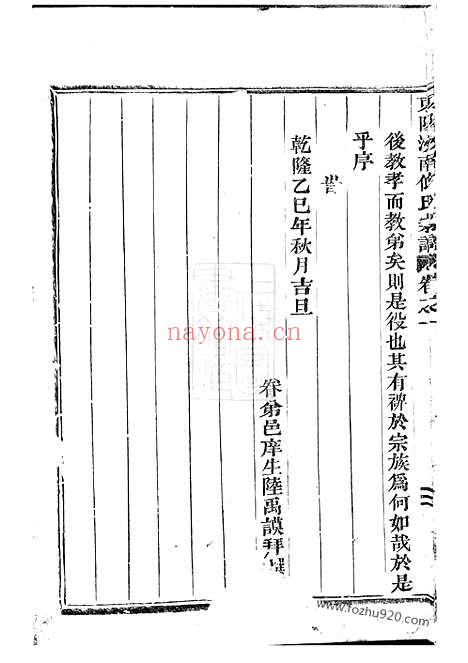 東陽湖南修氏宗譜 卷之一
三
後教孝而教弟矣則是役也其有裨於宗族爲何如哉於是
乎序
旹
乾隆乙巳年秋月吉旦
眷弟邑庠生陸禹謨拜撰
nayona.cn
www.fozhu920.com